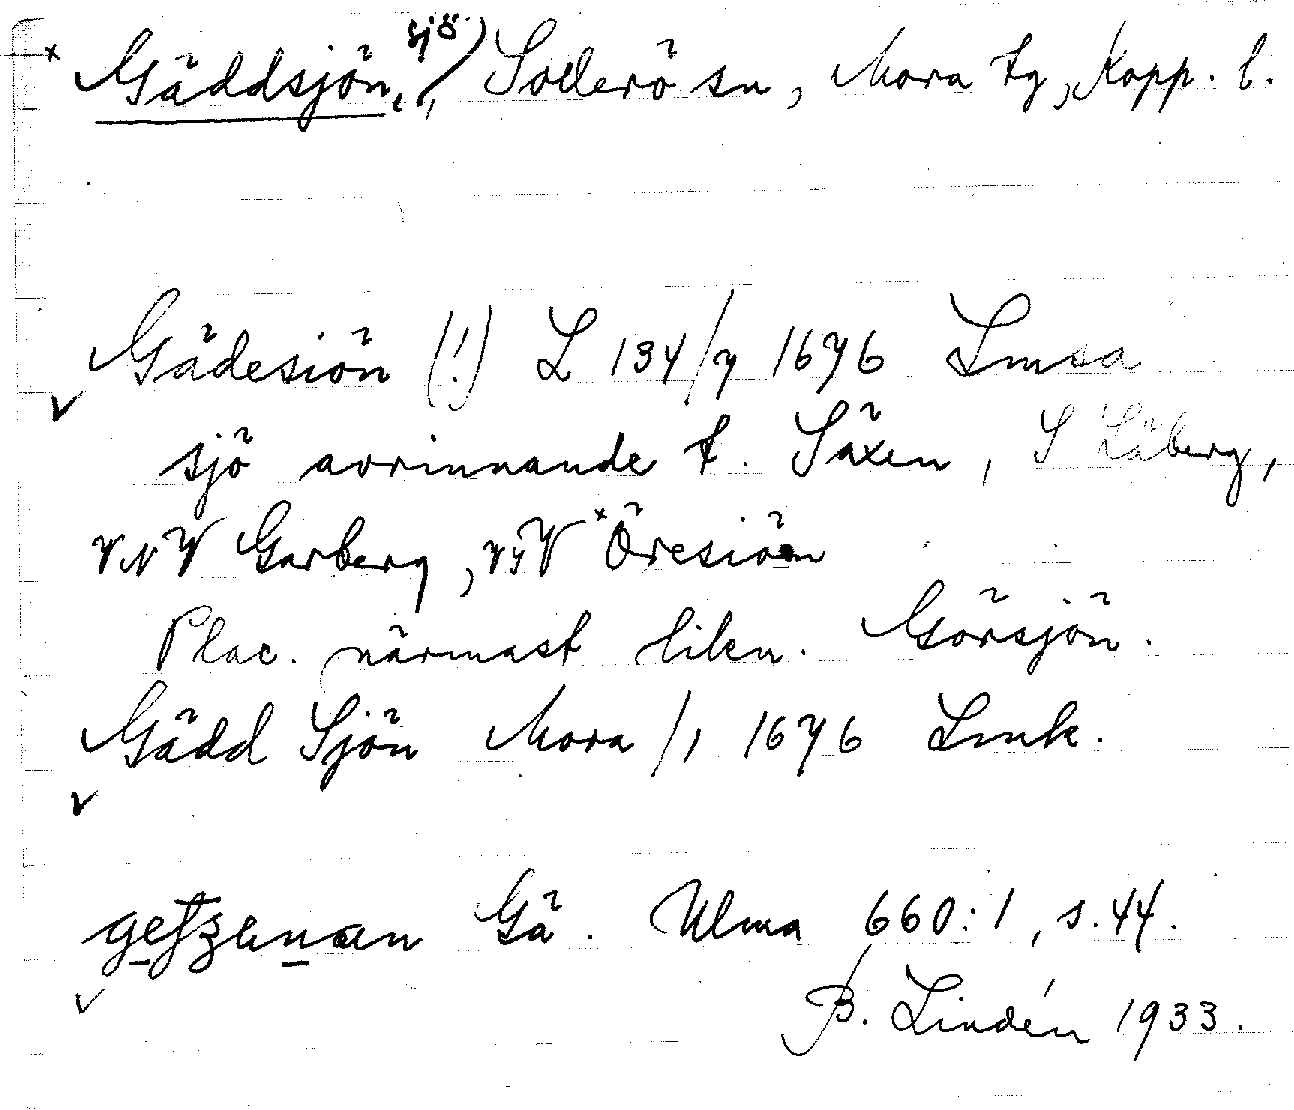 × Gäddsjön, sjö, Sollerö sn, Mora tg, Kopp. l.
Gädesiön (!) L 134/7 1676 Lmsa
sjö avrinnande t. Säxen, S Läberg,
VNV Garberg, VSV × Öresiön
Plac. närmast liken. Görsjön.
Gädd Sjön Mora /1 1676 Lmk.
Gä. Ulma 660:1, s. 44.
B. Lindén 1933.